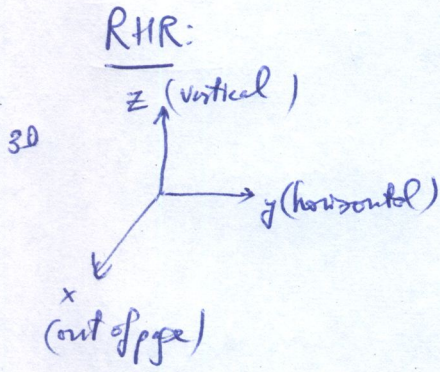 RHR:
z (vertical)
3D
y (horizontal)
x
(out of page)